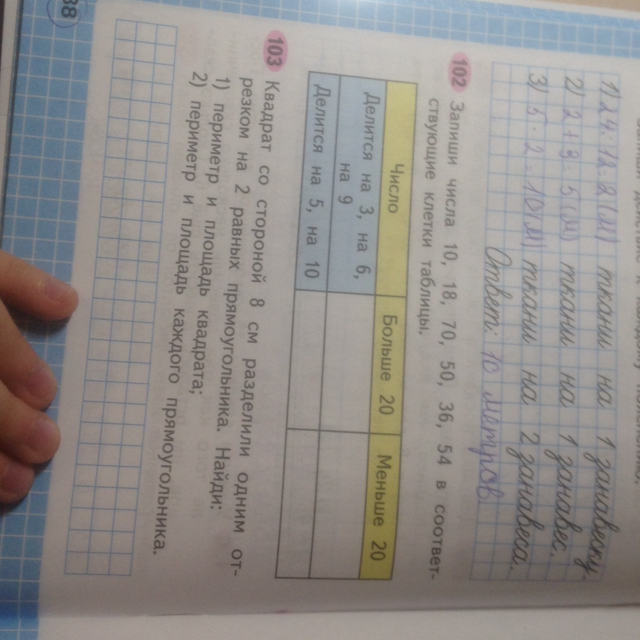 ткани на 1 занавеску.
2) 2 + 3 = 5 (м) ткани на 1 занавес.
3) 5 · 2 = 10 (м) ткани на 2 занавеса.
Ответ: 10 метров
102 Запиши числа 10, 18, 70, 50, 36, 54 в соответ-
ствующие клетки таблицы.
Число Больше 20 Меньше 20
Делится на 3, на 6,
на 9
Делится на 5, на 10
103 Квадрат со стороной 8 см разделили одним от-
резком на 2 равных прямоугольника. Найди:
1) периметр и площадь квадрата;
2) периметр и площадь каждого прямоугольника.
38